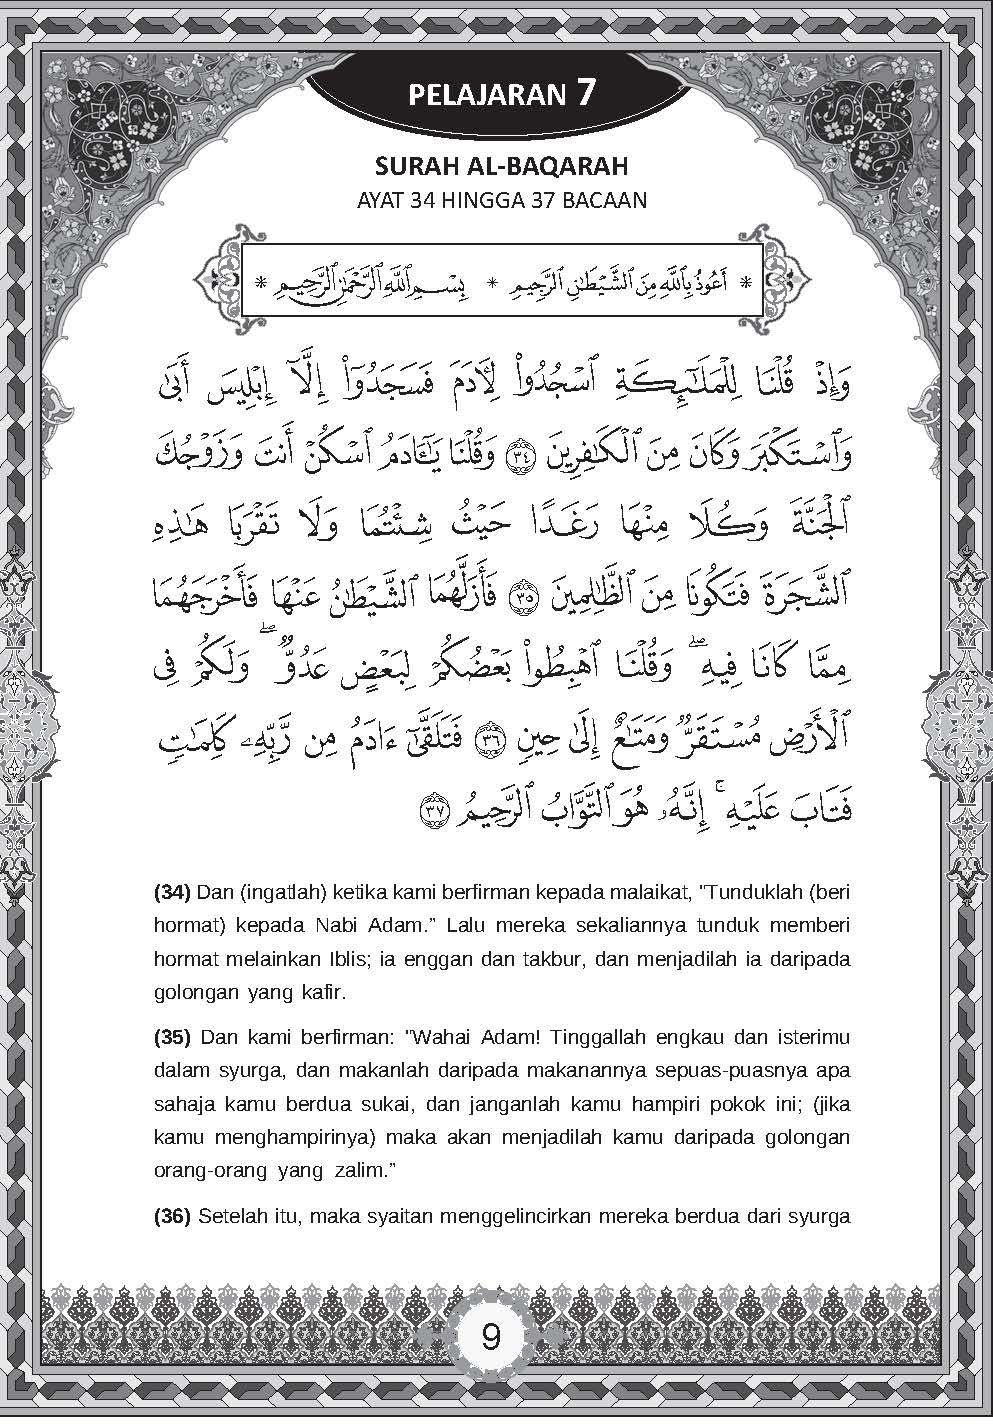 PELAJARAN 7
SURAH AL-BAQARAH
AYAT 34 HINGGA 37 BACAAN
* أَعُوذُ بِٱللَّهِ مِنَ ٱلشَّيْطَٰنِ ٱلرَّجِيمِ * بِسْمِ ٱللَّهِ ٱلرَّحْمَٰنِ ٱلرَّحِيمِ *
وَإِذْ قُلْنَا لِلْمَلَٰٓئِكَةِ ٱسْجُدُوا۟ لِـَٔادَمَ فَسَجَدُوٓا۟ إِلَّآ إِبْلِيسَ أَبَىٰ
وَٱسْتَكْبَرَ وَكَانَ مِنَ ٱلْكَٰفِرِينَ ٣٤ وَقُلْنَا يَٰٓـَٔادَمُ ٱسْكُنْ أَنتَ وَزَوْجُكَ
ٱلْجَنَّةَ وَكُلَا مِنْهَا رَغَدًا حَيْثُ شِئْتُمَا وَلَا تَقْرَبَا هَٰذِهِ
ٱلشَّجَرَةَ فَتَكُونَا مِنَ ٱلظَّٰلِمِينَ ٣٥ فَأَزَلَّهُمَا ٱلشَّيْطَٰنُ عَنْهَا فَأَخْرَجَهُمَا
مِمَّا كَانَا فِيهِ ۖ وَقُلْنَا ٱهْبِطُوا۟ بَعْضُكُمْ لِبَعْضٍ عَدُوٌّ ۖ وَلَكُمْ فِى
ٱلْأَرْضِ مُسْتَقَرٌّ وَمَتَٰعٌ إِلَىٰ حِينٍ ٣٦ فَتَلَقَّىٰٓ ءَادَمُ مِن رَّبِّهِۦ كَلِمَٰتٍ
فَتَابَ عَلَيْهِ ۚ إِنَّهُۥ هُوَ ٱلتَّوَّابُ ٱلرَّحِيمُ ٣٧
(34) Dan (ingatlah) ketika kami berfirman kepada malaikat, "Tunduklah (beri
hormat) kepada Nabi Adam.” Lalu mereka sekaliannya tunduk memberi
hormat melainkan Iblis; ia enggan dan takbur, dan menjadilah ia daripada
golongan yang kafir.
(35) Dan kami berfirman: "Wahai Adam! Tinggallah engkau dan isterimu
dalam syurga, dan makanlah daripada makanannya sepuas-puasnya apa
sahaja kamu berdua sukai, dan janganlah kamu hampiri pokok ini; (jika
kamu menghampirinya) maka akan menjadilah kamu daripada golongan
orang-orang yang zalim.”
(36) Setelah itu, maka syaitan menggelincirkan mereka berdua dari syurga
9